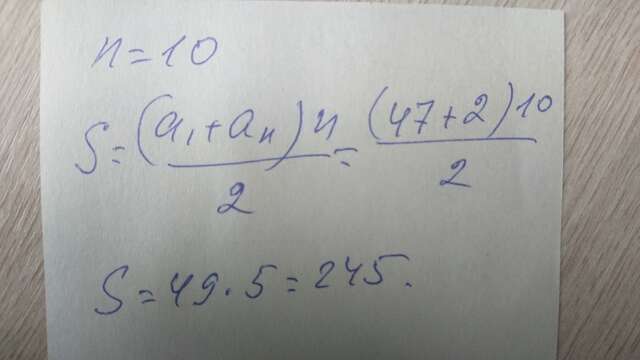 n=10
S=(a₁+aₙ)n/2=(47+2)10/2
S=49·5=245.